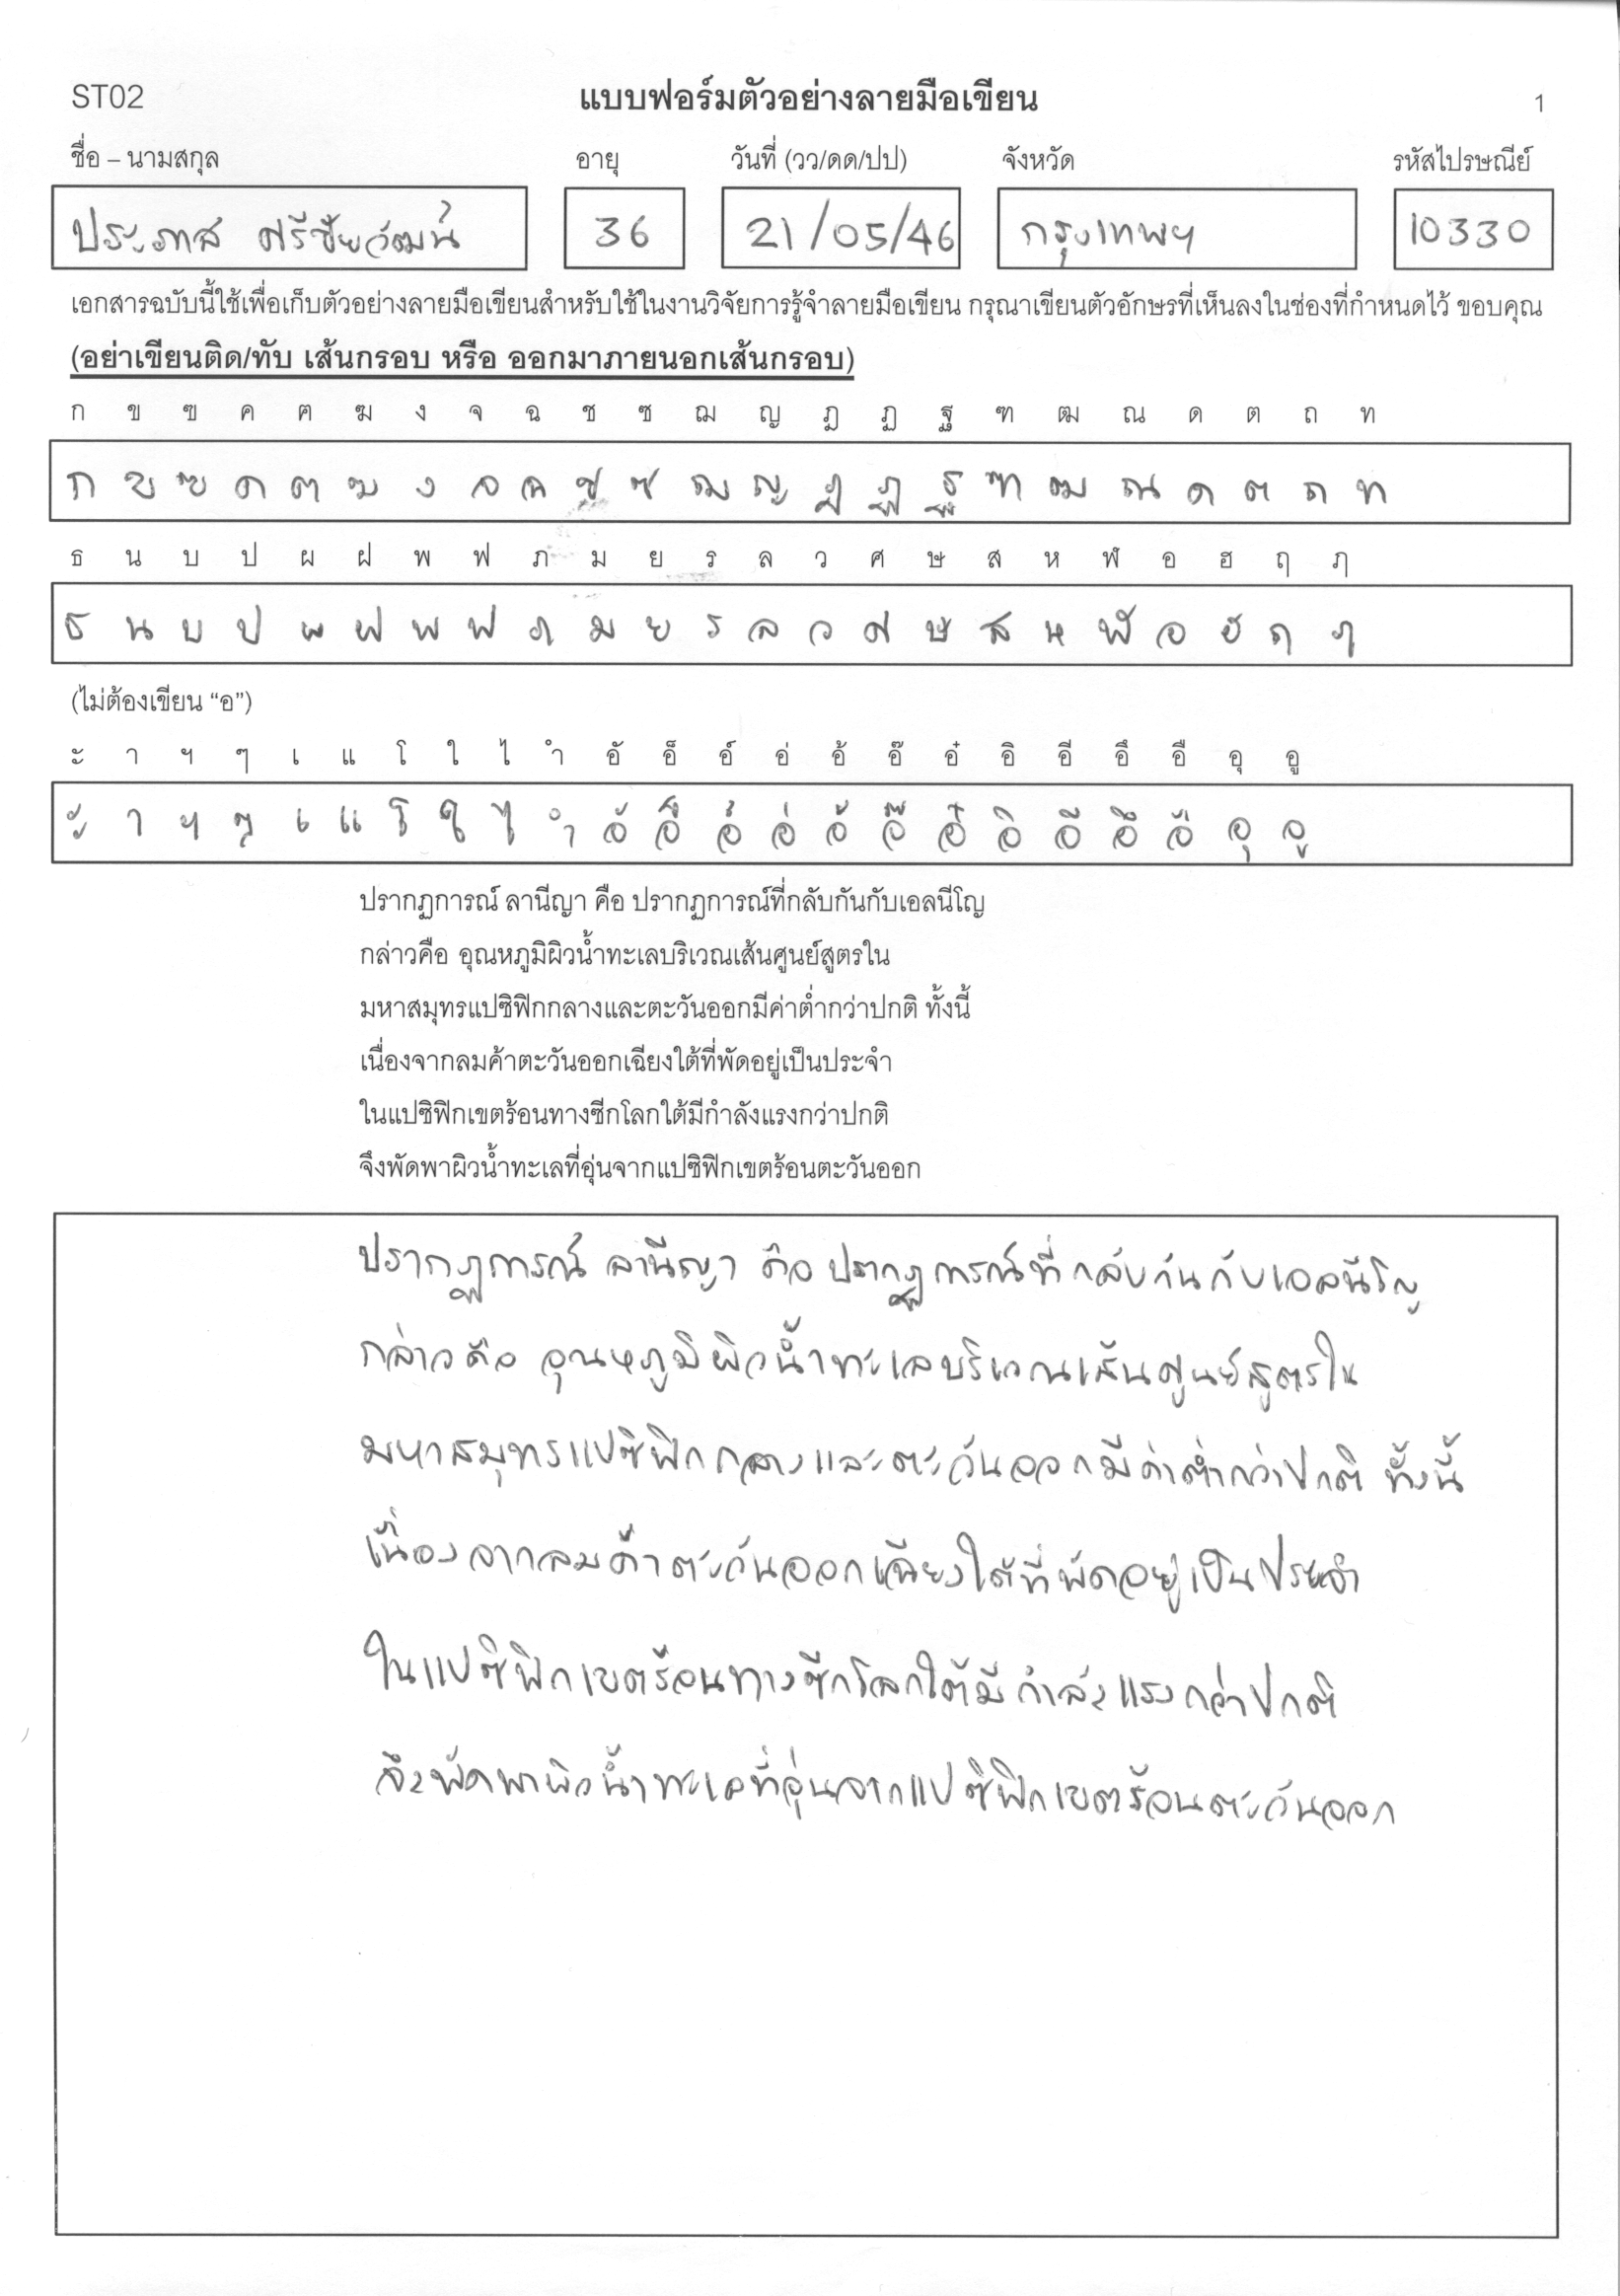 ST02 แบบฟอร์มตัวอย่างลายมือเขียน 1
ชื่อ – นามสกุล อายุ วันที่ (วว/ดด/ปป) จังหวัด รหัสไปรษณีย์
ประภาส ศรีชัยวัฒน์ 36 21/05/46 กรุงเทพฯ 10330
เอกสารฉบับนี้ใช้เพื่อเก็บตัวอย่างลายมือเขียนสำหรับใช้ในงานวิจัยการรู้จำลายมือเขียน กรุณาเขียนตัวอักษรที่เห็นลงในช่องที่กำหนดไว้ ขอบคุณ
(อย่าเขียนติด/ทับ เส้นกรอบ หรือ ออกมาภายนอกเส้นกรอบ)
ก ข ฃ ค ฅ ฆ ง จ ฉ ช ซ ฌ ญ ฎ ฏ ฐ ฑ ฒ ณ ด ต ถ ท
ก ข ฃ ค ฅ ฆ ง จ ฉ ช ซ ฌ ญ ฎ ฏ ฐ ฑ ฒ ณ ด ต ถ ท
ธ น บ ป ผ ฝ พ ฟ ภ ม ย ร ล ว ศ ษ ส ห ฬ อ ฮ ฤ ฦ
ธ น บ ป ผ ฝ พ ฟ ภ ม ย ร ล ว ศ ษ ส ห ฬ อ ฮ ฤ ฦ
(ไม่ต้องเขียน “อ”)
ะ า ฯ ๆ เ แ โ ใ ไ ำ อั อ็ อ์ อ่ อ้ อ๊ อ๋ อิ อี อึ อื อุ อู
ะ า ฯ ๆ เ แ โ ใ ไ ำ อั อ็ อ์ อ่ อ้ อ๊ อ๋ อิ อี อึ อื อุ อู
ปรากฏการณ์ ลานีญา คือ ปรากฏการณ์ที่กลับกันกับเอลนีโญ
กล่าวคือ อุณหภูมิผิวน้ำทะเลบริเวณเส้นศูนย์สูตรใน
มหาสมุทรแปซิฟิกกลางและตะวันออกมีค่าต่ำกว่าปกติ ทั้งนี้
เนื่องจากลมค้าตะวันออกเฉียงใต้ที่พัดอยู่เป็นประจำ
ในแปซิฟิกเขตร้อนทางซีกโลกใต้มีกำลังแรงกว่าปกติ
จึงพัดพาผิวน้ำทะเลที่อุ่นจากแปซิฟิกเขตร้อนตะวันออก
ปรากฏการณ์ ลานีญา คือ ปรากฏการณ์ที่กลับกันกับเอลนีโญ
กล่าวคือ อุณหภูมิผิวน้ำทะเลบริเวณเส้นศูนย์สูตรใน
มหาสมุทรแปซิฟิกกลางและตะวันออกมีค่าต่ำกว่าปกติ ทั้งนี้
เนื่องจากลมค้าตะวันออกเฉียงใต้ที่พัดอยู่เป็นประจำ
ในแปซิฟิกเขตร้อนทางซีกโลกใต้มีกำลังแรงกว่าปกติ
จึงพัดพาผิวน้ำทะเลที่อุ่นจากแปซิฟิกเขตร้อนตะวันออก